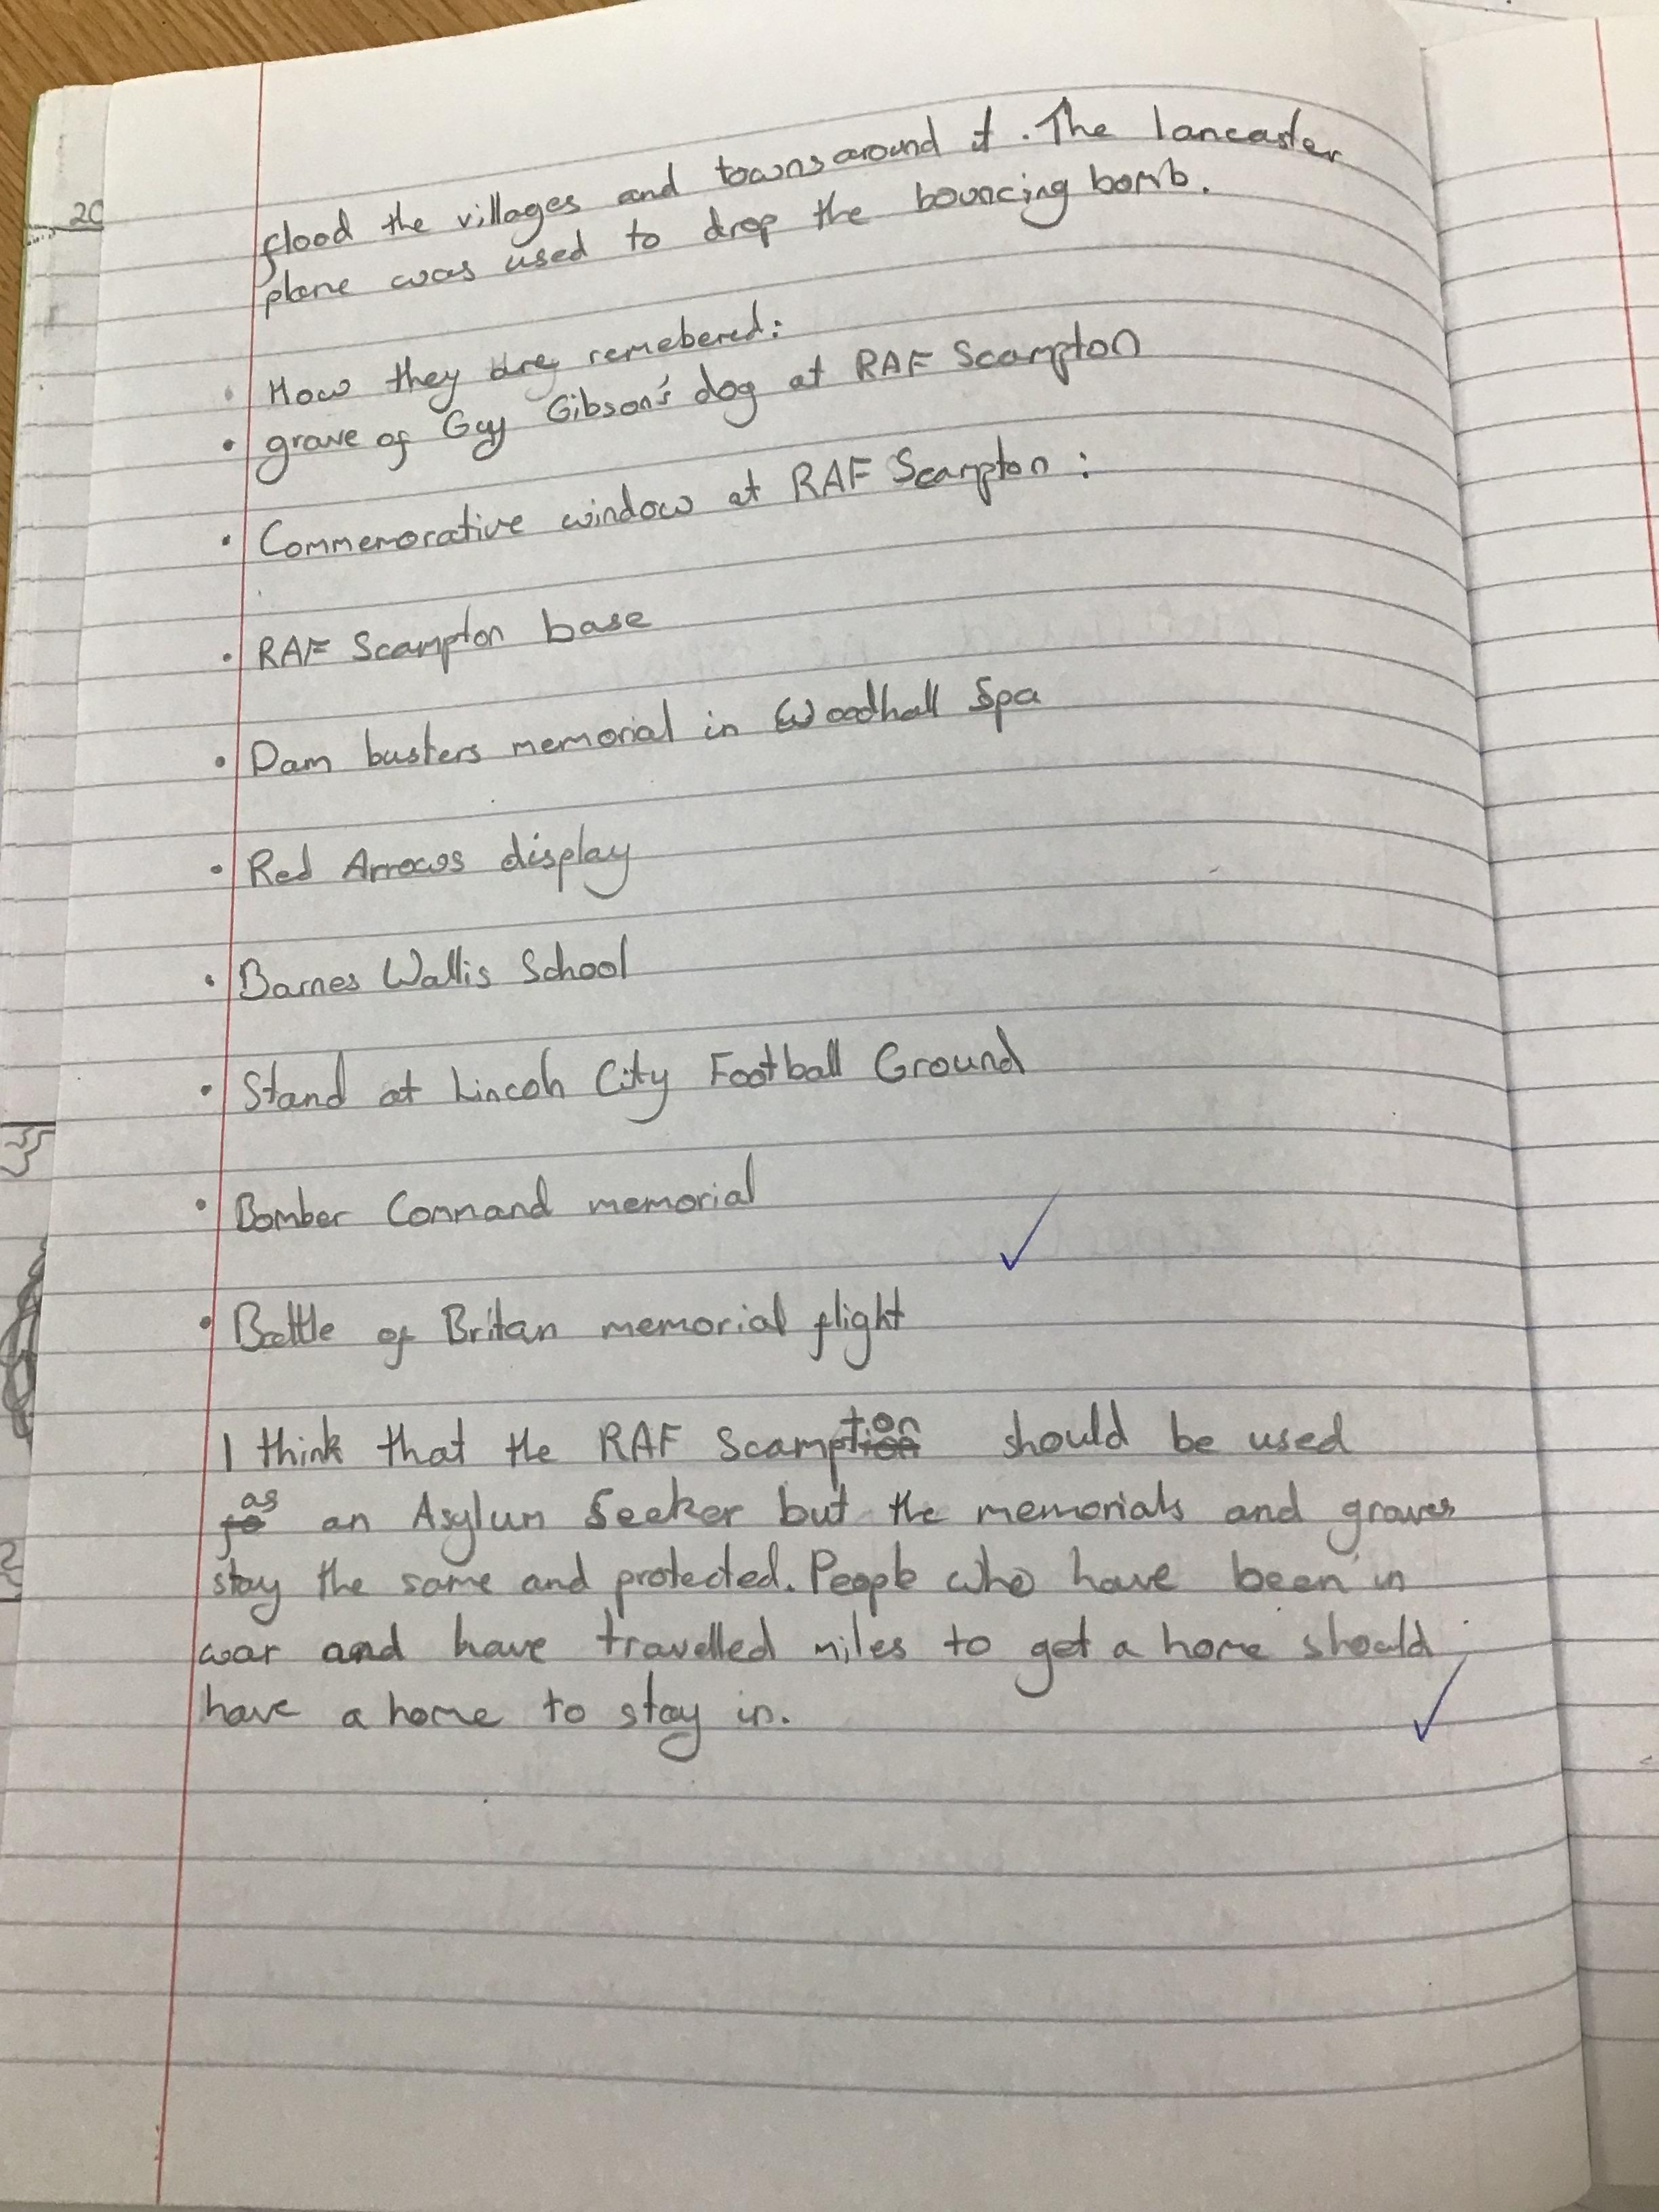 20
flood the villages and towns around it. The lancaster
plane was used to drop the bouncing bomb.
• How they are remebered:
• grave of Guy Gibson's dog at RAF Scampton
• Commemorative window at RAF Scampton:
• RAF Scampton base
• Dam busters memorial in Woodhall Spa
• Red Arrows display
• Barnes Wallis School
• Stand at Lincoln City Football Ground
• Bomber Command memorial
• Battle of Britan memorial flight
I think that the RAF Scampton should be used
as an Asylum Seeker but the memorials and graves
stay the same and protected. People who have been in
war and have travelled miles to get a home should
have a home to stay in.